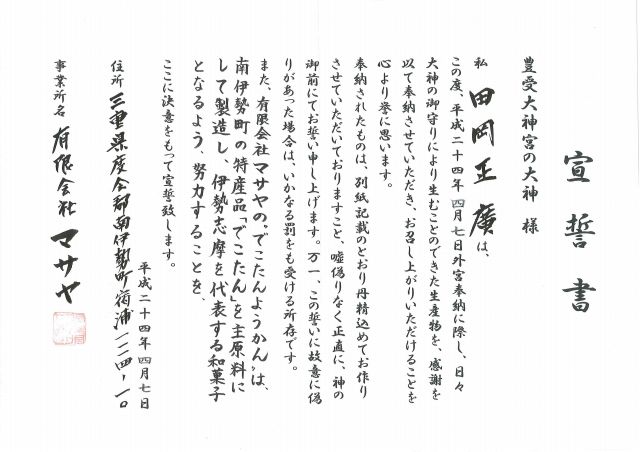 宣誓書
豊受大神宮の大神 様
私 田岡正廣は、
この度、平成二十四年 四月七日外宮奉納に際し、日々
大神の御守りにより生むことのできた生産物を、感謝を
以て奉納させていただき、お召し上がりいただけることを
心より誉に思います。
奉納されたものは、別紙記載のとおり丹精込めてお作り
させていただいておりますこと、嘘偽りなく正直に、神の
御前にてお誓い申し上げます。万一、この誓いに故意に偽
りがあった場合は、いかなる罰をも受ける所存です。
また、有限会社マサヤの“でこたんようかん”は、
南伊勢町の特産品「でこたん」を主原料に
して製造し、伊勢志摩を代表する和菓子
となるよう、努力することを、
ここに決意をもって宣誓致します。
平成二十四年 四月七日
住所 三重県度会郡南伊勢町宿浦一一二四-一〇
事業所名 有限会社 マサヤ